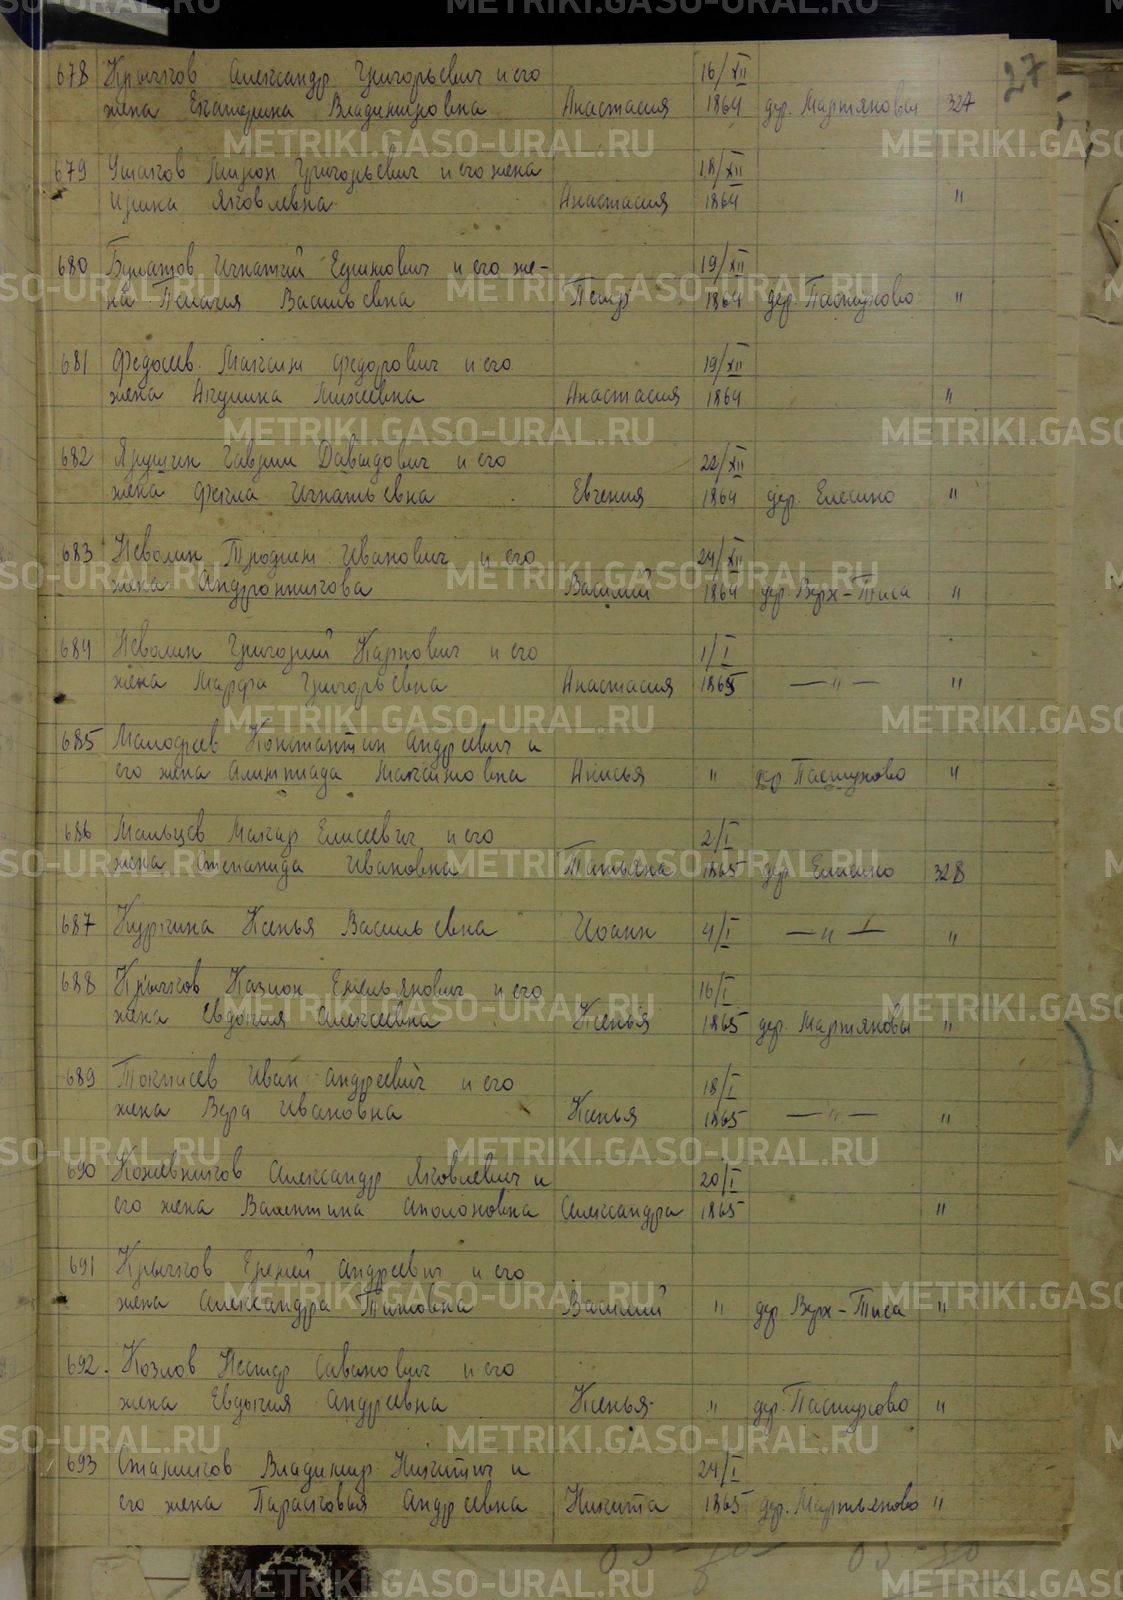 27
678 Крычков Александр Григорьевич и его 16/XII
жена Екатерина Владимировна Анастасия 1864 дер. Мартяновы 327
679 Ушаков Мирон Григорьевич и его жена 18/XII
Ирина Яковлевна Анастасия 1864 "
680 Булатов Игнатий Ефимович и его же- 19/XII
на Пелагия Васильевна Петр 1864 дер. Пастухово "
681 Федосеев Максим Федорович и его 19/XII
жена Акулина Михеевна Анастасия 1864 "
682 Ярушин Гаврил Давыдович и его 22/XII
жена Фекла Игнатьевна Евгения 1864 дер. Елесино "
683 Неволин Иванович и его 24/XII
жена Андронникова Василий 1864 дер. Верх-Тиса "
684 Неволин Григорий Карпович и его 1/I
жена Марфа Григорьевна Анастасия 1865 — " — "
685 Малофеев Константин Андреевич и
его жена Олимпиада Максимовна Анисья " дер Пастухово "
686 Мальцев Макар Елисеевич и его 2/I
жена Степанида Ивановна Татьяна 1865 дер. Елисино 328
687 Куркина Ксенья Васильевна Иоанн 4/I — " — "
688 Крычков Емельянович и его 16/I
жена Евдокия Алексеевна Ксенья 1865 дер. Мартяновы "
689 Иван Андреевич и его 18/I
жена Вера Ивановна Ксенья 1865 — " — "
690 Кожевников Александр Яковлевич и 20/I
его жена Валентина Аполоновна Александра 1865 "
691 Крычков Еремей Андреевич и его
жена Александра Титовна Василий " дер. Верх-Тиса "
692. Козлов Нестер Саванович и его
жена Евдокия Андреевна Ксенья " дер. Пастухово "
693 Стариков Владимир Никитич и 24/I
его жена Парасковья Андреевна Никита 1865 дер. Мартьяново "
METRIKI.GASO-URAL.RU